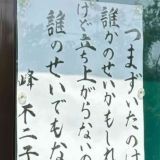 つまずいたのは
誰かのせいかもしれ
けど立ち上がらないの
誰のせいでもな
峰 不二子